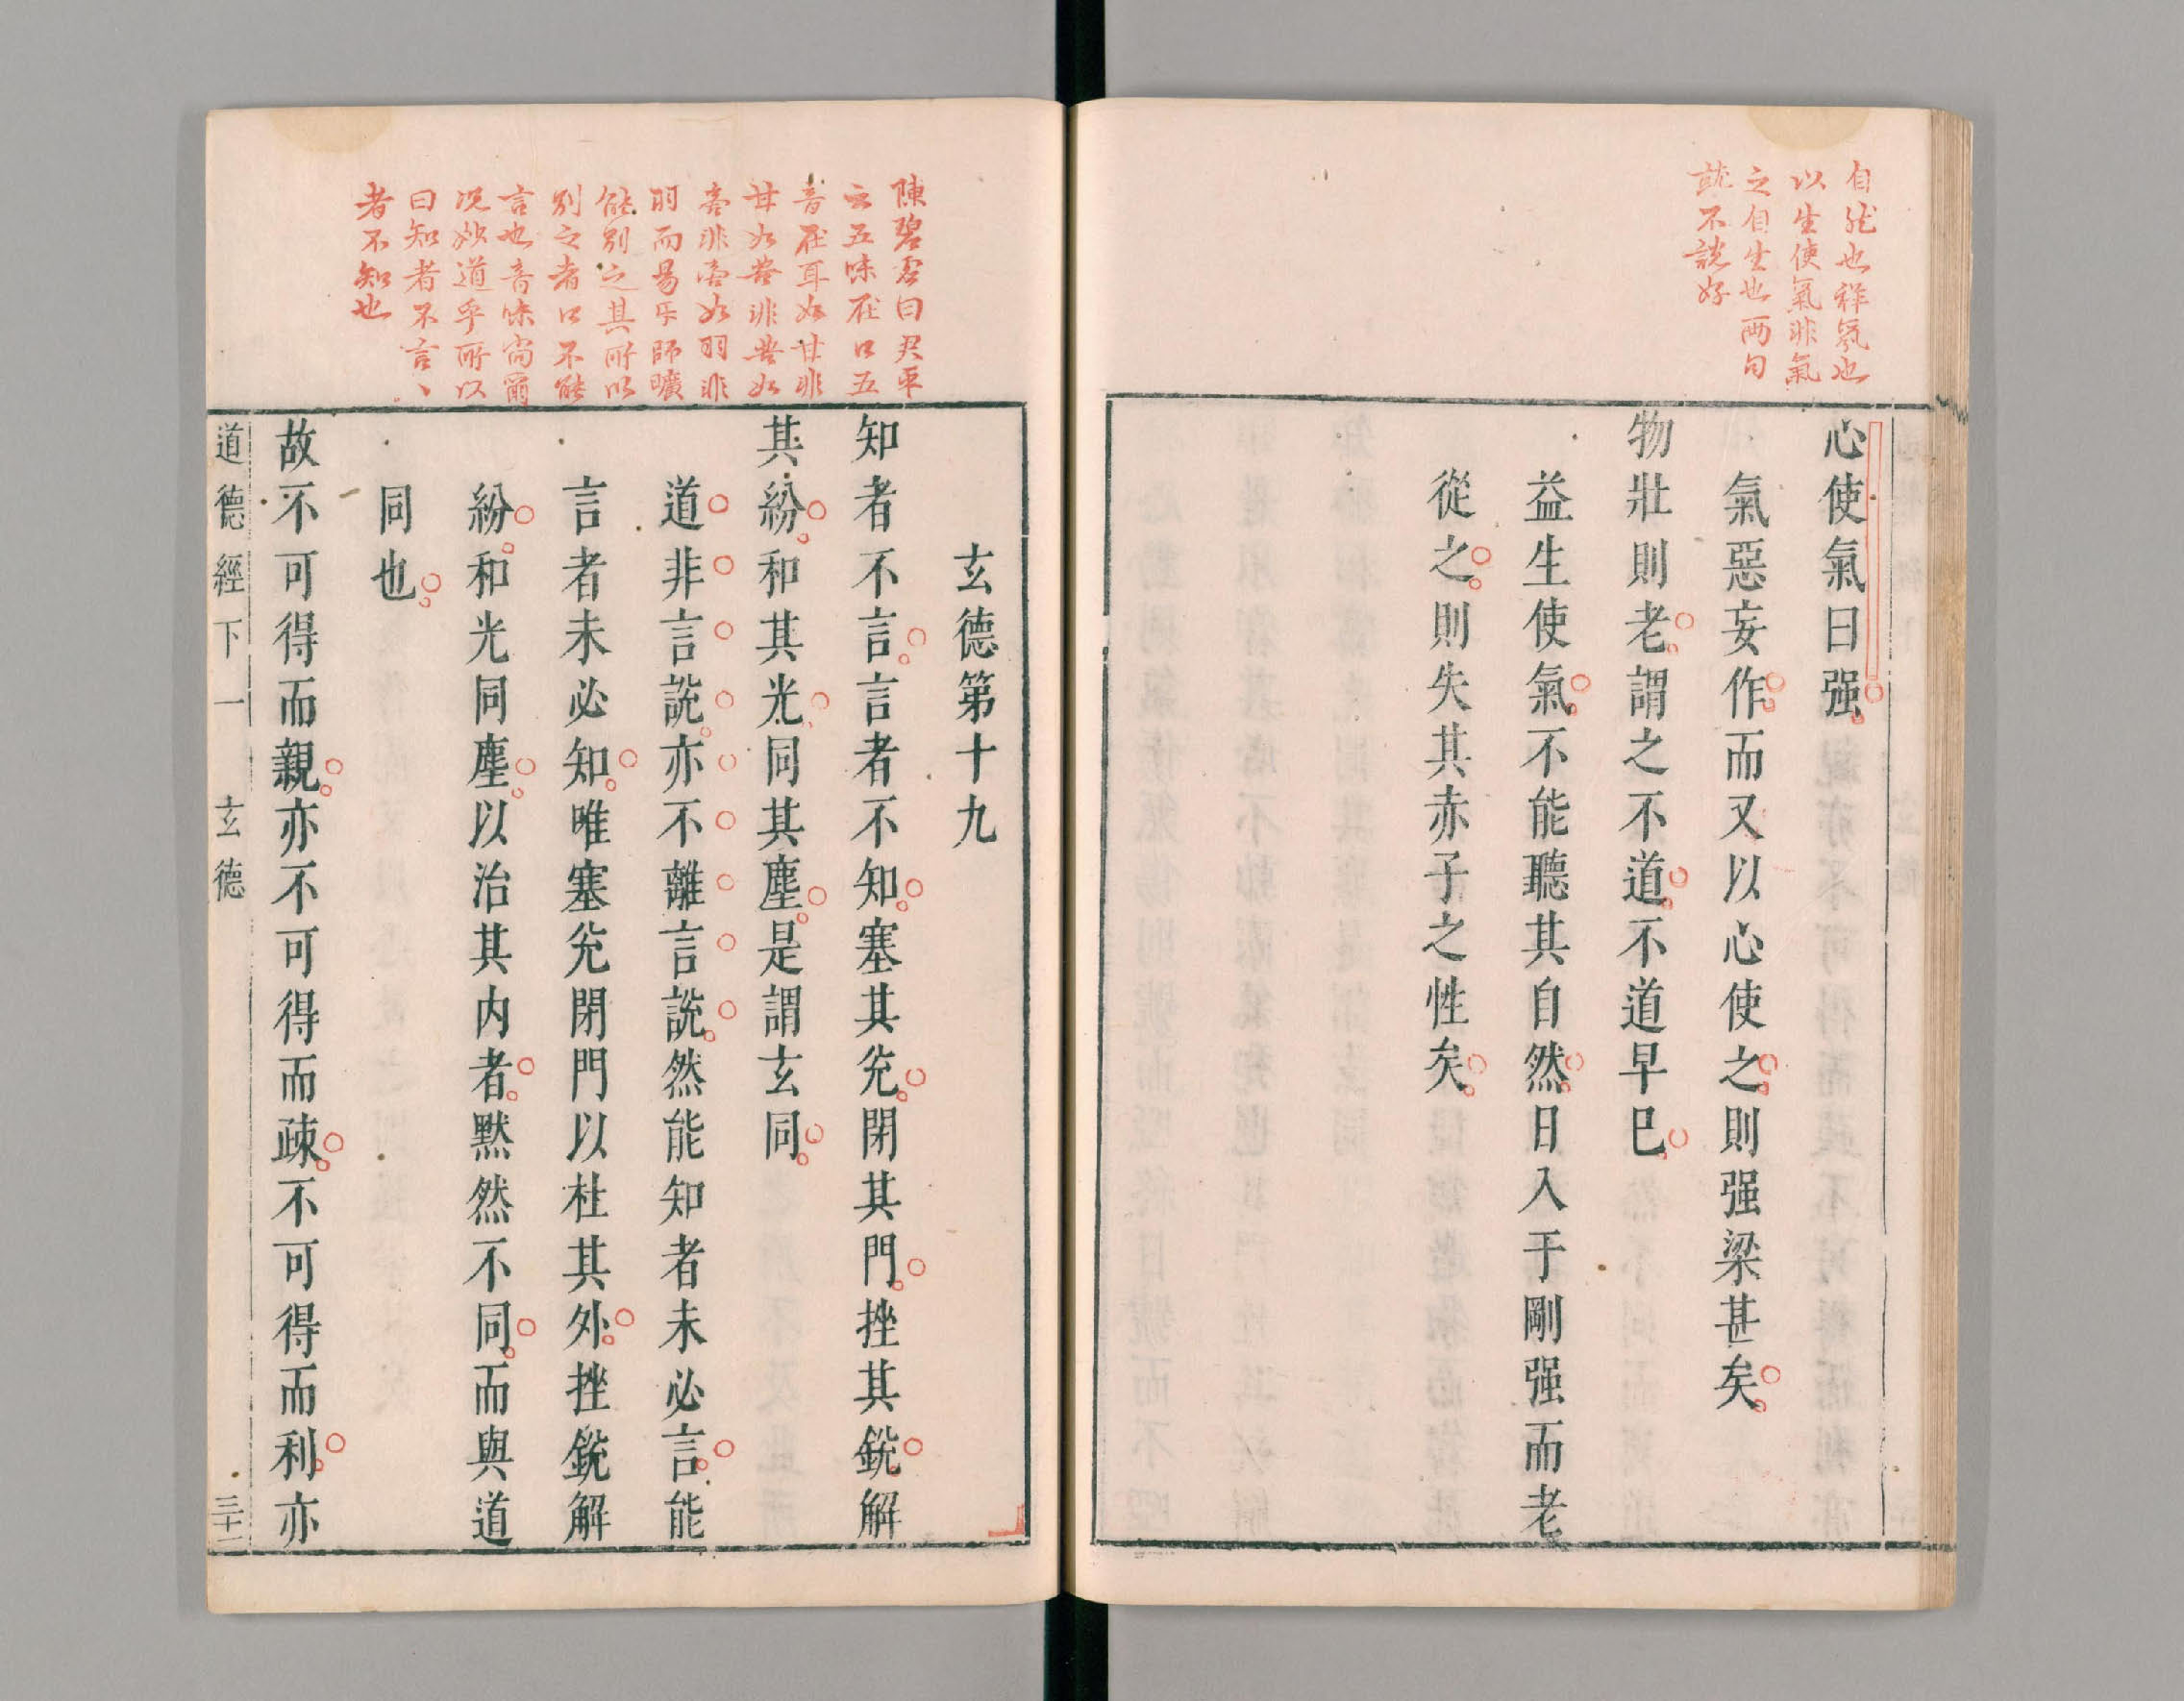 自然也祥氣也
以生使氣非氣
之自生也兩句
就不說好
心使氣曰强
氣惡妄作而又以心使之則强梁甚矣
物壯則老謂之不道不道早巳
益生使氣不能聽其自然日入于剛强而老
從之則失其赤子之性矣
陳碧虛曰君平
云五味在口五
音在耳如甘非
甘如苦非苦如
商非商如羽非
羽而易牙師曠
能別之其所以
別之者口不能
言也音味尚爾
況妙道乎所以
曰知者不言丶
者不知也
玄德第十九
知者不言言者不知塞其兊閉其門挫其銳解
其紛和其光同其塵是謂玄同
道非言說亦不離言說然能知者未必言能
言者未必知唯塞兊閉門以杜其外挫銳解
紛和光同塵以治其内者默然不同而與道
同也
故不可得而親亦不可得而疎不可得而利亦
道德經下一 玄德 三十二